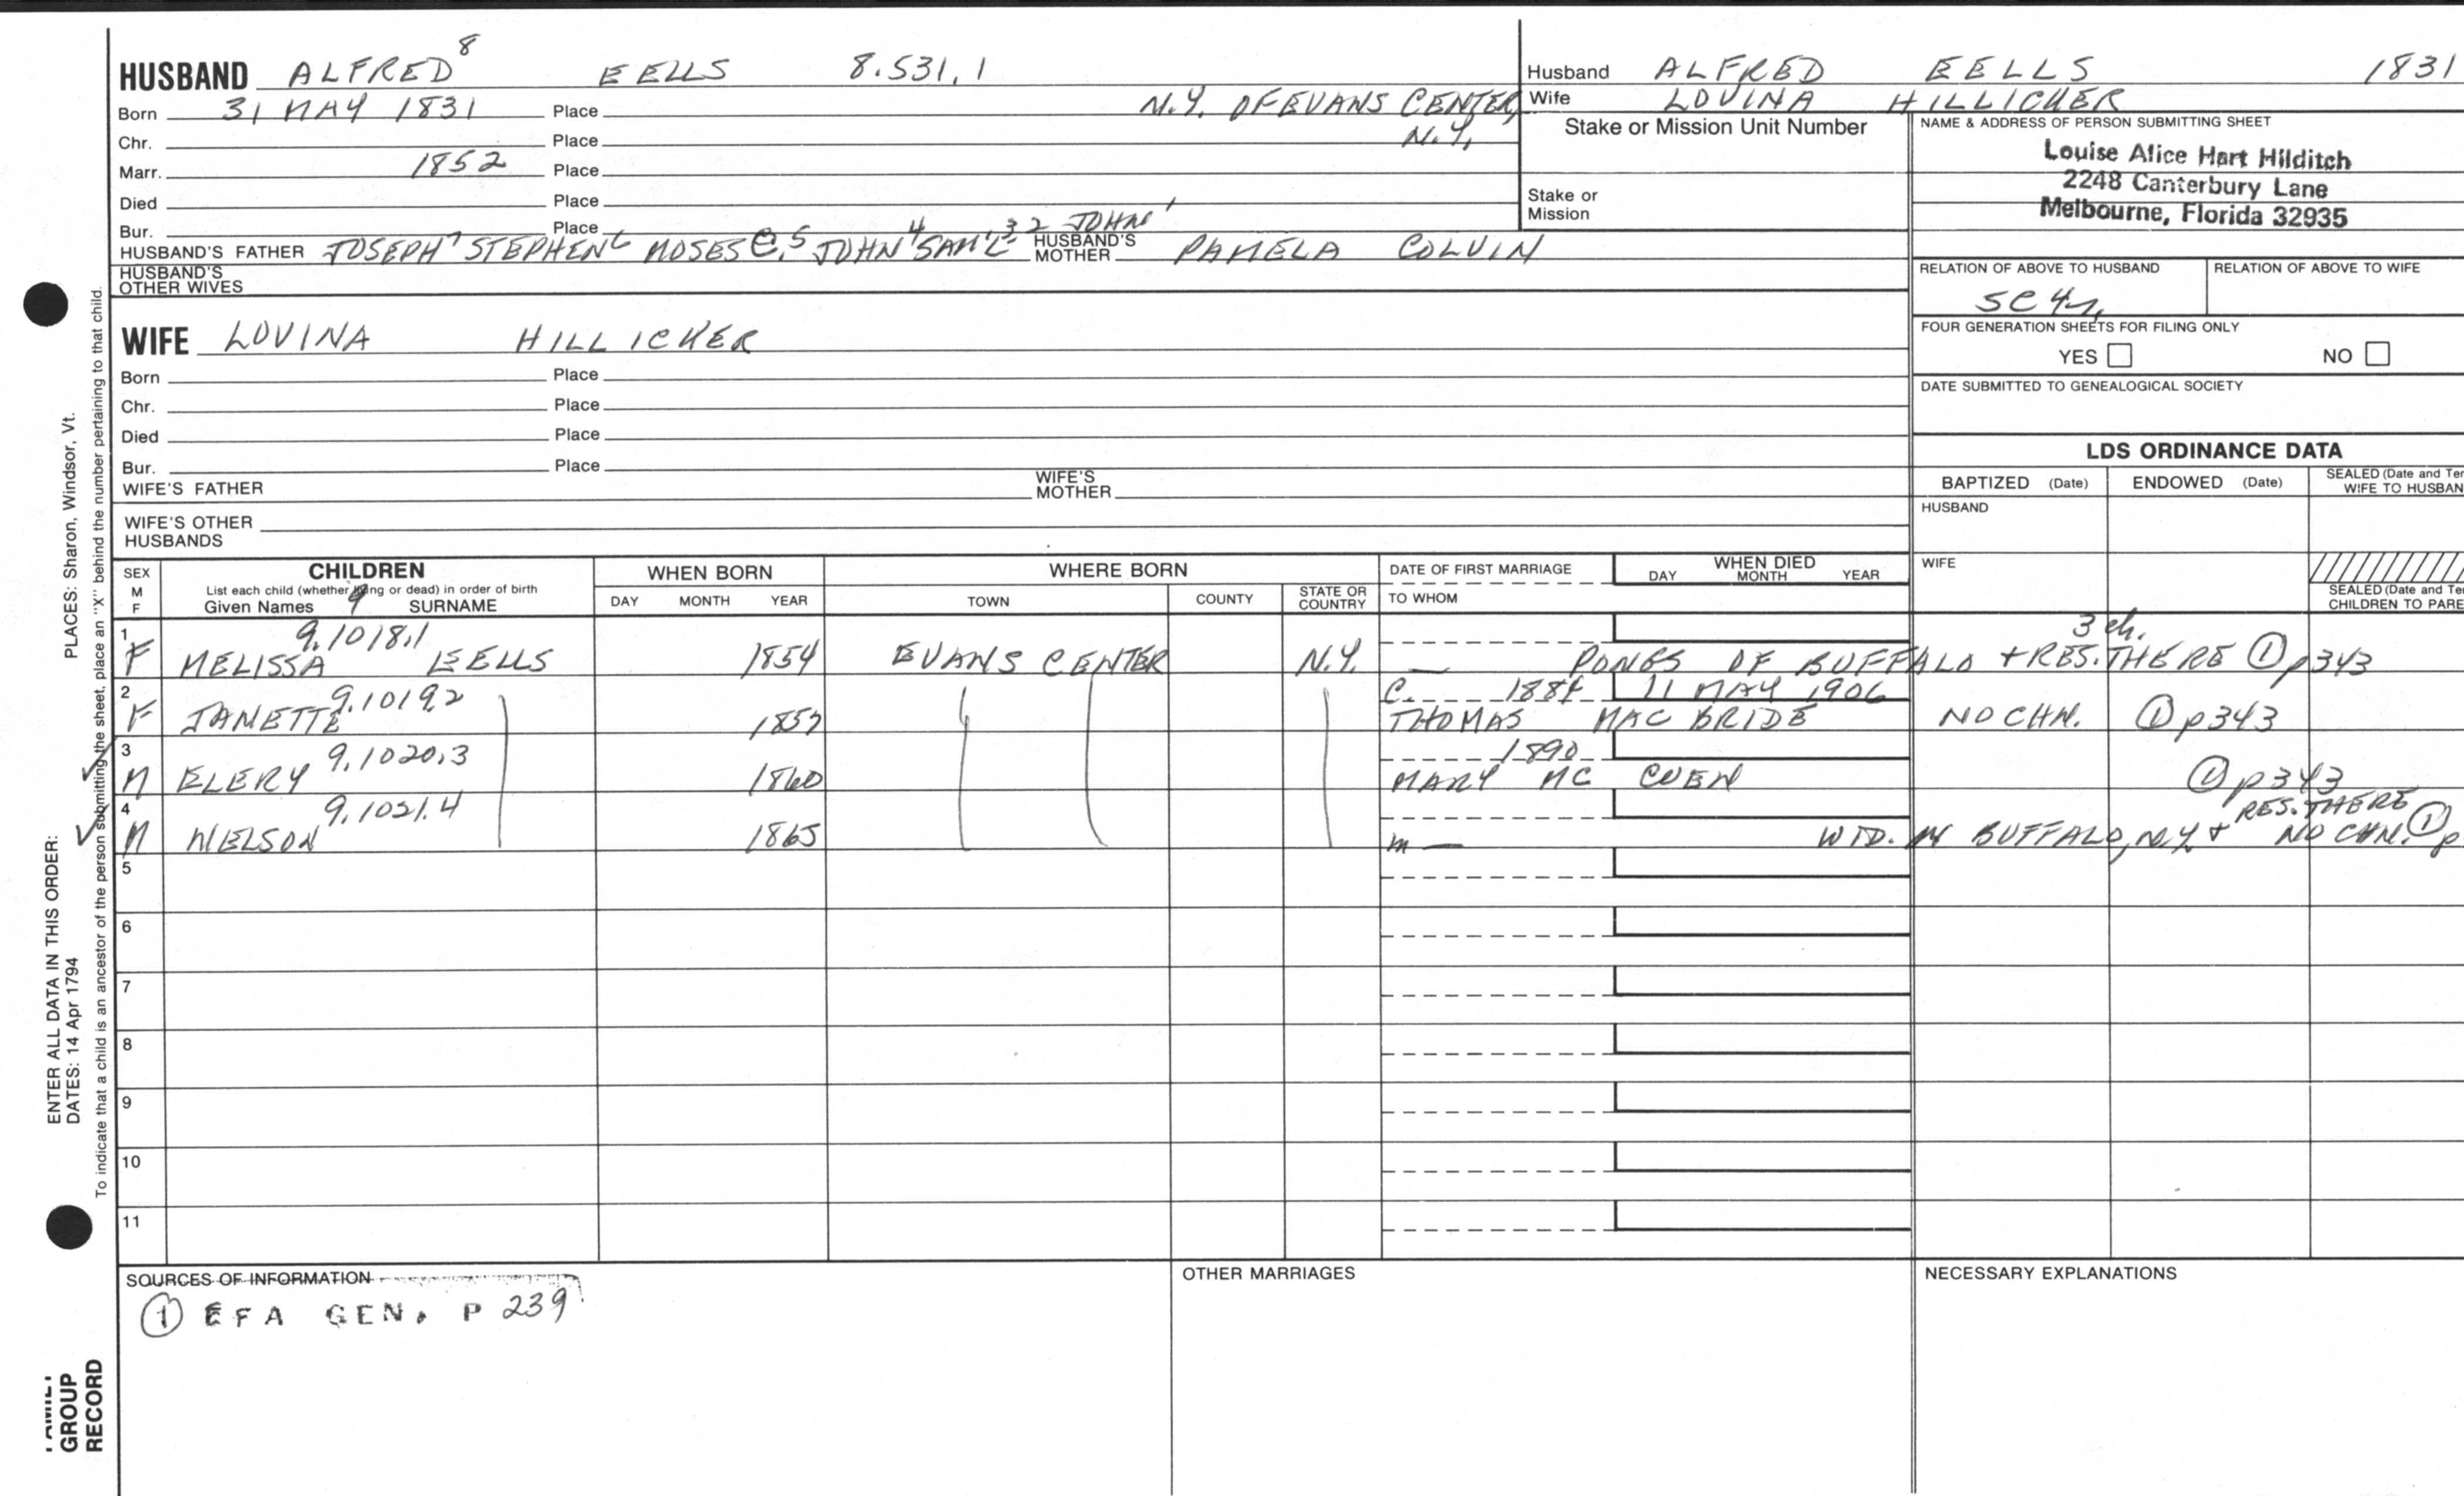 HUSBAND ALFRED⁸ EELLS 8.531.1
Born 31 MAY 1831 Place N.Y. OF EVANS CENTER,
Chr. Place N.Y.
Marr. 1852 Place
Died Place
Bur. Place
HUSBAND'S FATHER JOSEPH⁷ STEPHEN⁶ MOSES C.⁵ JOHN⁴ SAM'L³ ² JOHN¹ HUSBAND'S MOTHER PAMELA COLVIN
HUSBAND'S OTHER WIVES
WIFE LOVINA HILLICKER
Born Place
Chr. Place
Died Place
Bur. Place
WIFE'S FATHER WIFE'S MOTHER
WIFE'S OTHER HUSBANDS
Husband ALFRED EELLS 1831
Wife LOVINA HILLICKER
Stake or Mission Unit Number
Stake or Mission
NAME & ADDRESS OF PERSON SUBMITTING SHEET
Louise Alice Hart Hilditch
2248 Canterbury Lane
Melbourne, Florida 32935
RELATION OF ABOVE TO HUSBAND RELATION OF ABOVE TO WIFE
5C4r,
FOUR GENERATION SHEETS FOR FILING ONLY
YES NO
DATE SUBMITTED TO GENEALOGICAL SOCIETY
LDS ORDINANCE DATA
BAPTIZED (Date) ENDOWED (Date) SEALED (Date and Ter
WIFE TO HUSBAN
HUSBAND
WIFE
SEALED (Date and Te
CHILDREN TO PARE
SEX M F
CHILDREN
List each child (whether living or dead) in order of birth
Given Names 9 SURNAME
WHEN BORN
DAY MONTH YEAR
WHERE BORN
TOWN COUNTY STATE OR COUNTRY
DATE OF FIRST MARRIAGE
TO WHOM
WHEN DIED
DAY MONTH YEAR
1 9.1018.1 3 ch.
F MELISSA EELLS 1854 EVANS CENTER N.Y. — PONGS OF BUFFALO + RES. THERE ① p343
2 9.1019.2 C. 1884 11 MAY 1906
F JANETTE 1857 THOMAS MAC BRIDE NO CHN. ① p343
3 9.1020.3 1890
M ELERY 1860 MARY MC CUEN ① p343
4 9.1021.4 RES. THERE
M NELSON 1865 m — WID. IN BUFFALO, N.Y. + NO CHN. ① p
5
6
7
8
9
10
11
SOURCES OF INFORMATION
① EFA GEN. P 239
OTHER MARRIAGES
NECESSARY EXPLANATIONS
PLACES: Sharon, Windsor, Vt.
ENTER ALL DATA IN THIS ORDER:
DATES: 14 Apr 1794
To indicate that a child is an ancestor of the person submitting the sheet, place an "X" behind the number pertaining to that child.
FAMILY
GROUP
RECORD